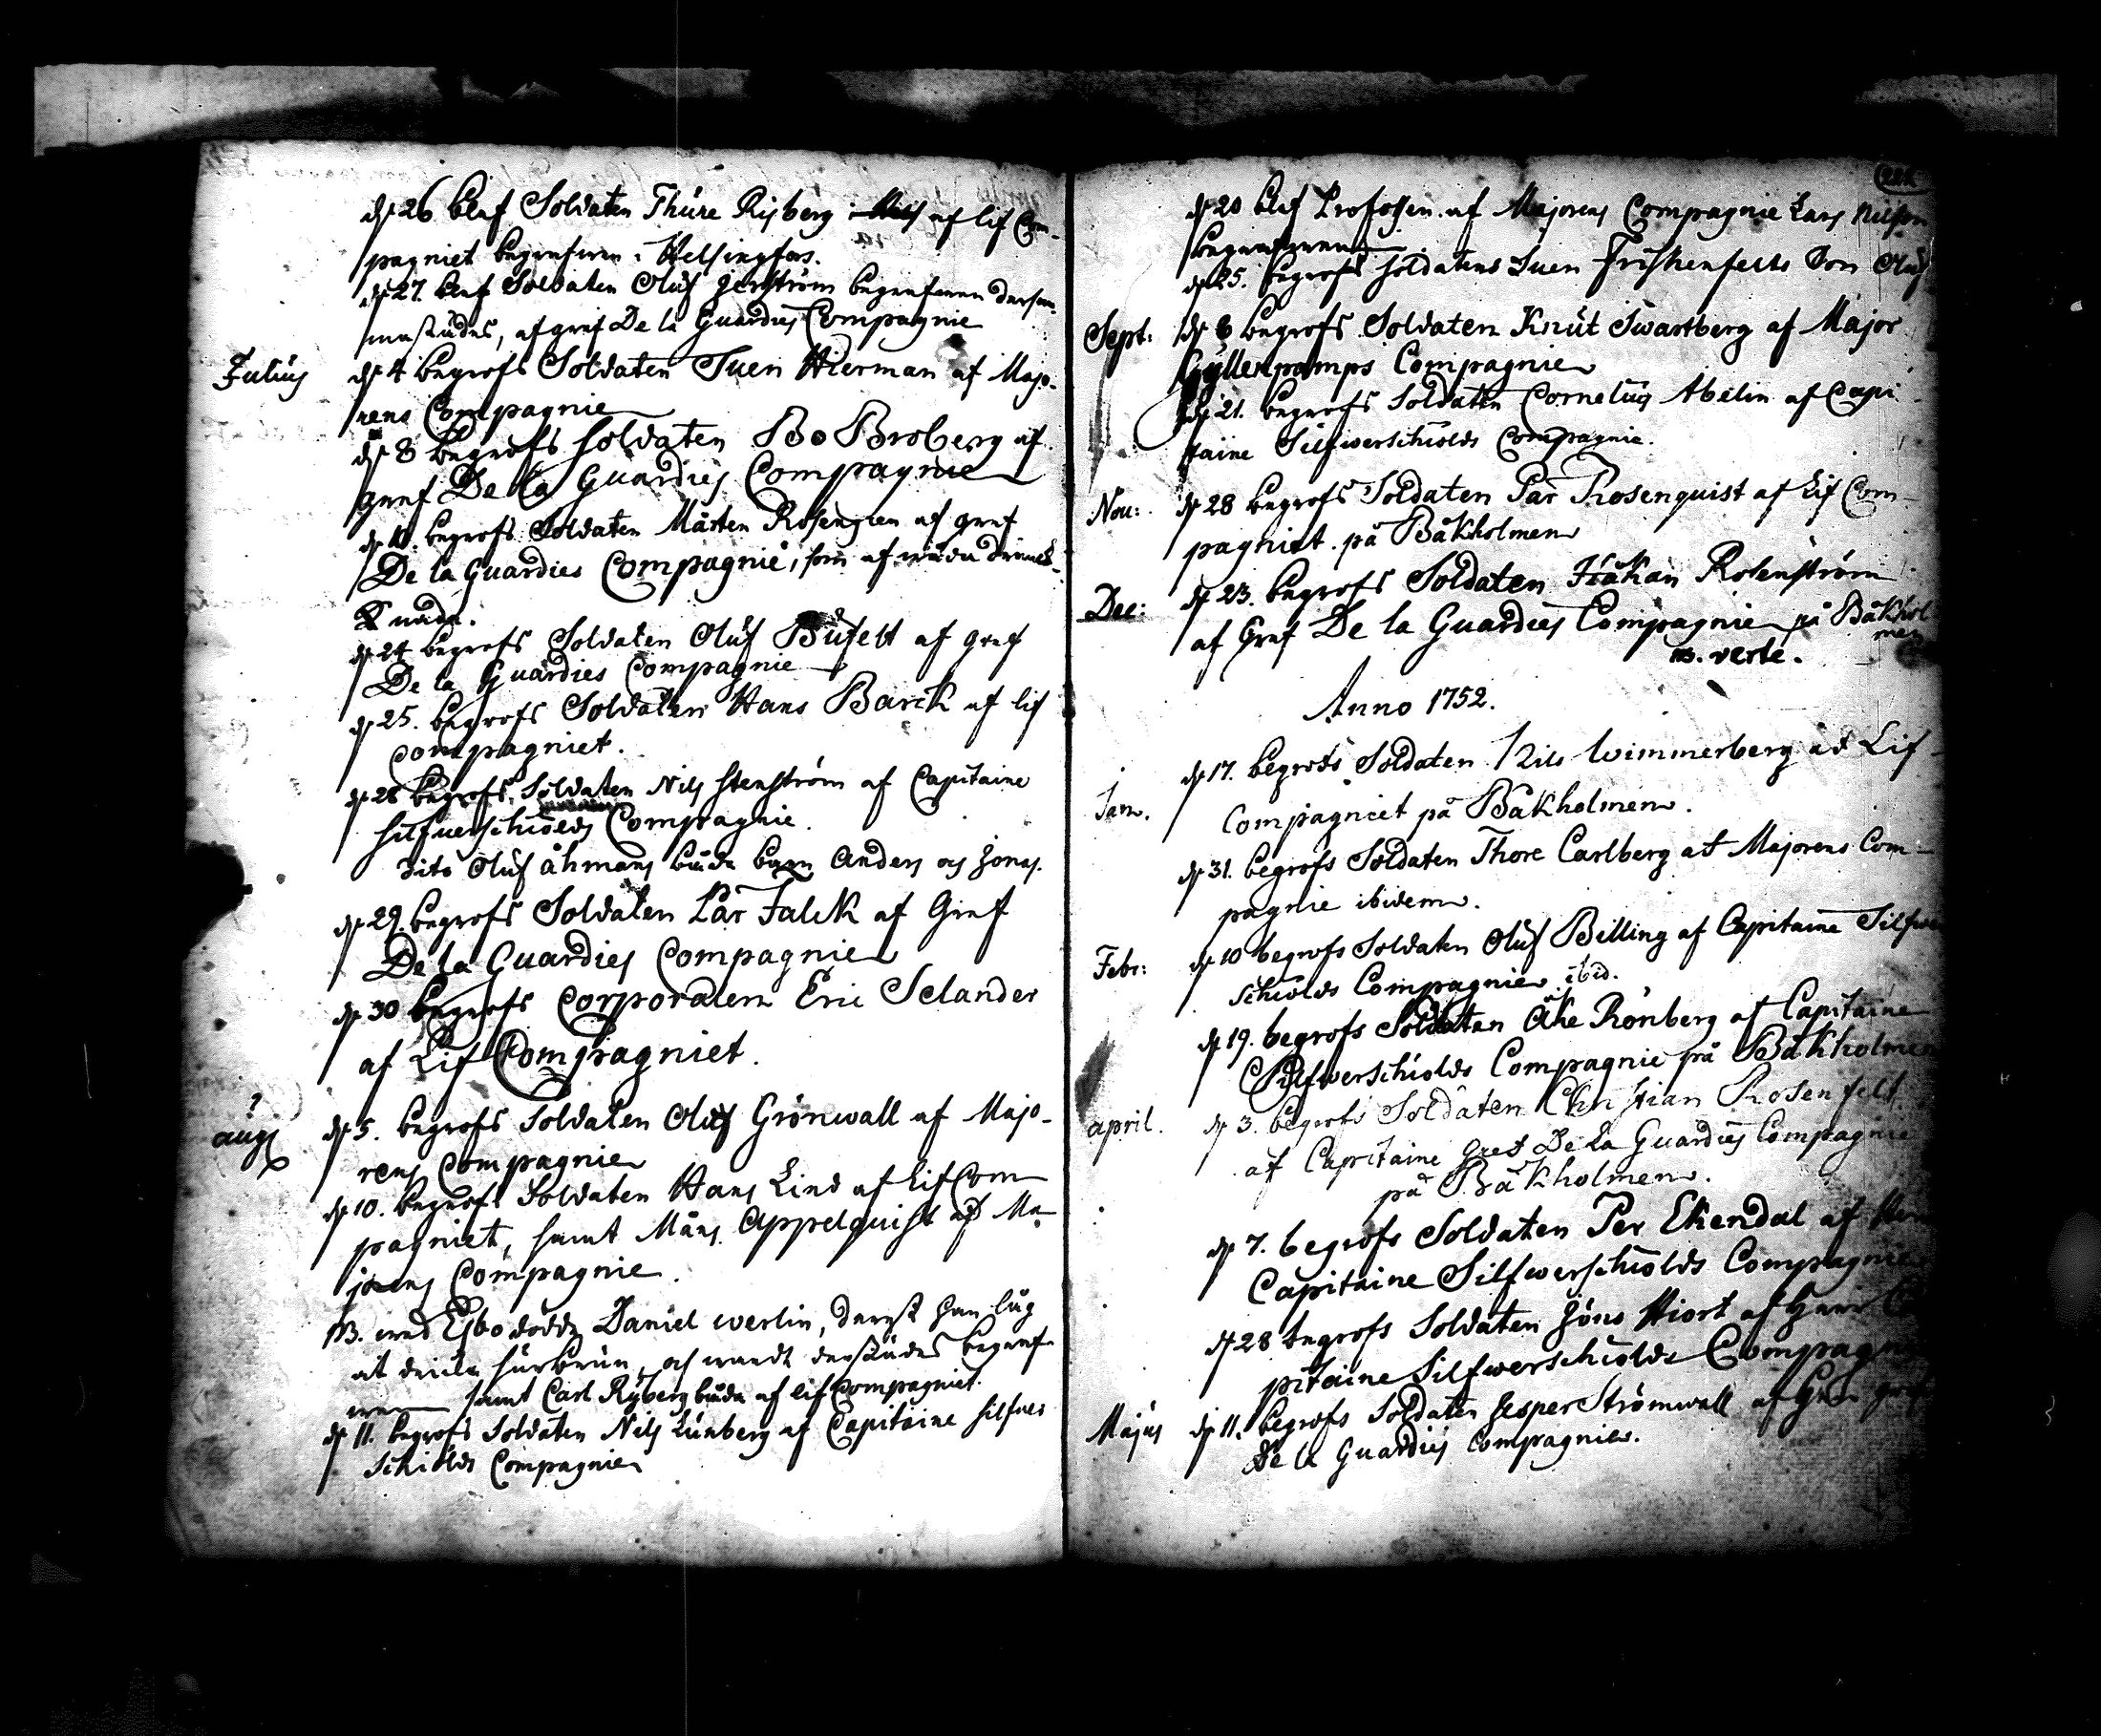 d. 26 blef Soldaten Thure Rijberg af lif Com-
pagniet begrafwen i Helsingfors.
d. 27. blef Soldaten Oluf Jerström begrafwen dersam-
mastädes, af graf De la Guardies Compagnie
Julius d. 4 begrofs Soldaten Suen Hierman af Majo-
rens Compagnie
d. 8 begrofs Soldaten Bo Broberg af
graf De la Guardies Compagnie
begrofs Soldaten Mårten Rosengren af graf
De la Guardies Compagnie, som af wåda drunck-
nade.
d. 24 begrofs Soldaten Oluf Bufelt af graf
De la Guardies Compagnie
d. 25. begrofs Soldaten Hans Barck af lif
Compagniet.
d. 28 begrofs Soldaten Nils Stenström af Capitaine
Silfuerschiölds Compagnie.
dito Oluf Åhmans båda barn Anders och Jonas.
d. 29. begrofs Soldaten Pär Falck af Graf
De la Guardies Compagnie
d. 30 begrofs Corporalen Eric Selander
af Lif Compagniet.
aug d. 5. begrofs Soldaten Oluf Grönwall af Majo-
rens Compagnie
d. 10. begrofs Soldaten Hans Lind af Lif Com
pagniet, samt Måns Appelquist af Ma-
jorens Compagnie.
NB. wid Esbo dödde Daniel Werlin, derest han låg
at dricka surbrun, och wardt derstädes begraf-
wen samt Carl Ryberg båda af lif Compagniet.
d. 11. begrofs Soldaten Nils Lünberg af Capitaine Silfuer
Schiölds Compagnie
d. 20 blef Profossen af Majorens Compagnie Lars Nilsson
begrafwen
d. 25. begrofs Soldatens Suen Friskenfelts Son Oluf
Sept: d. 6 begrofs Soldaten Knut Swartberg af Major
Gyllenpamps Compagnie
d. 21. begrofs Soldaten Cornelius Abelin af Capi-
taine Silfwerschiolds Compagnie.
Nou: d. 28 begrofs Soldaten Pär Rosenquist af Lif Com-
pagniet. på Båkholmen
Dec: d. 23. begrofs Soldaten Håkan Rosenström
af Graf De la Guardies Compagnie på Båkhol
men
NB. verte.
Anno 1752.
Jan. d. 17. begrofs Soldaten Nils Wimmerberg af Lif-
Compagniet på Båkholmen.
d. 31. begrofs Soldaten Thore Carlberg af Majorens Com-
pagnie ibidem.
Febr: d. 10 begrofs Soldaten Oluf Billing af Capitaine Silfwer
Schiolds Compagnie ibid.
d. 19. begrofs Soldaten Åke Rönberg af Capitaine
Silfwerschiolds Compagnie på Båkholmen
april. d. 3. begrofs Soldaten Christian Rosenfelt
af Capitaine Gref De La Guardies Compagnie
på Båkholmen.
d. 7. begrofs Soldaten Per Ekendal af Herr
Capitaine Silfwerschiolds Compagnie
d. 28 begrofs Soldaten Jöns Hiort af Herr Ca
pitaine Silfwerschiolds Compagnie
Majus d. 11. begrofs Soldaten Jesper Strömwall af graf
De la Guardies Compagnie.